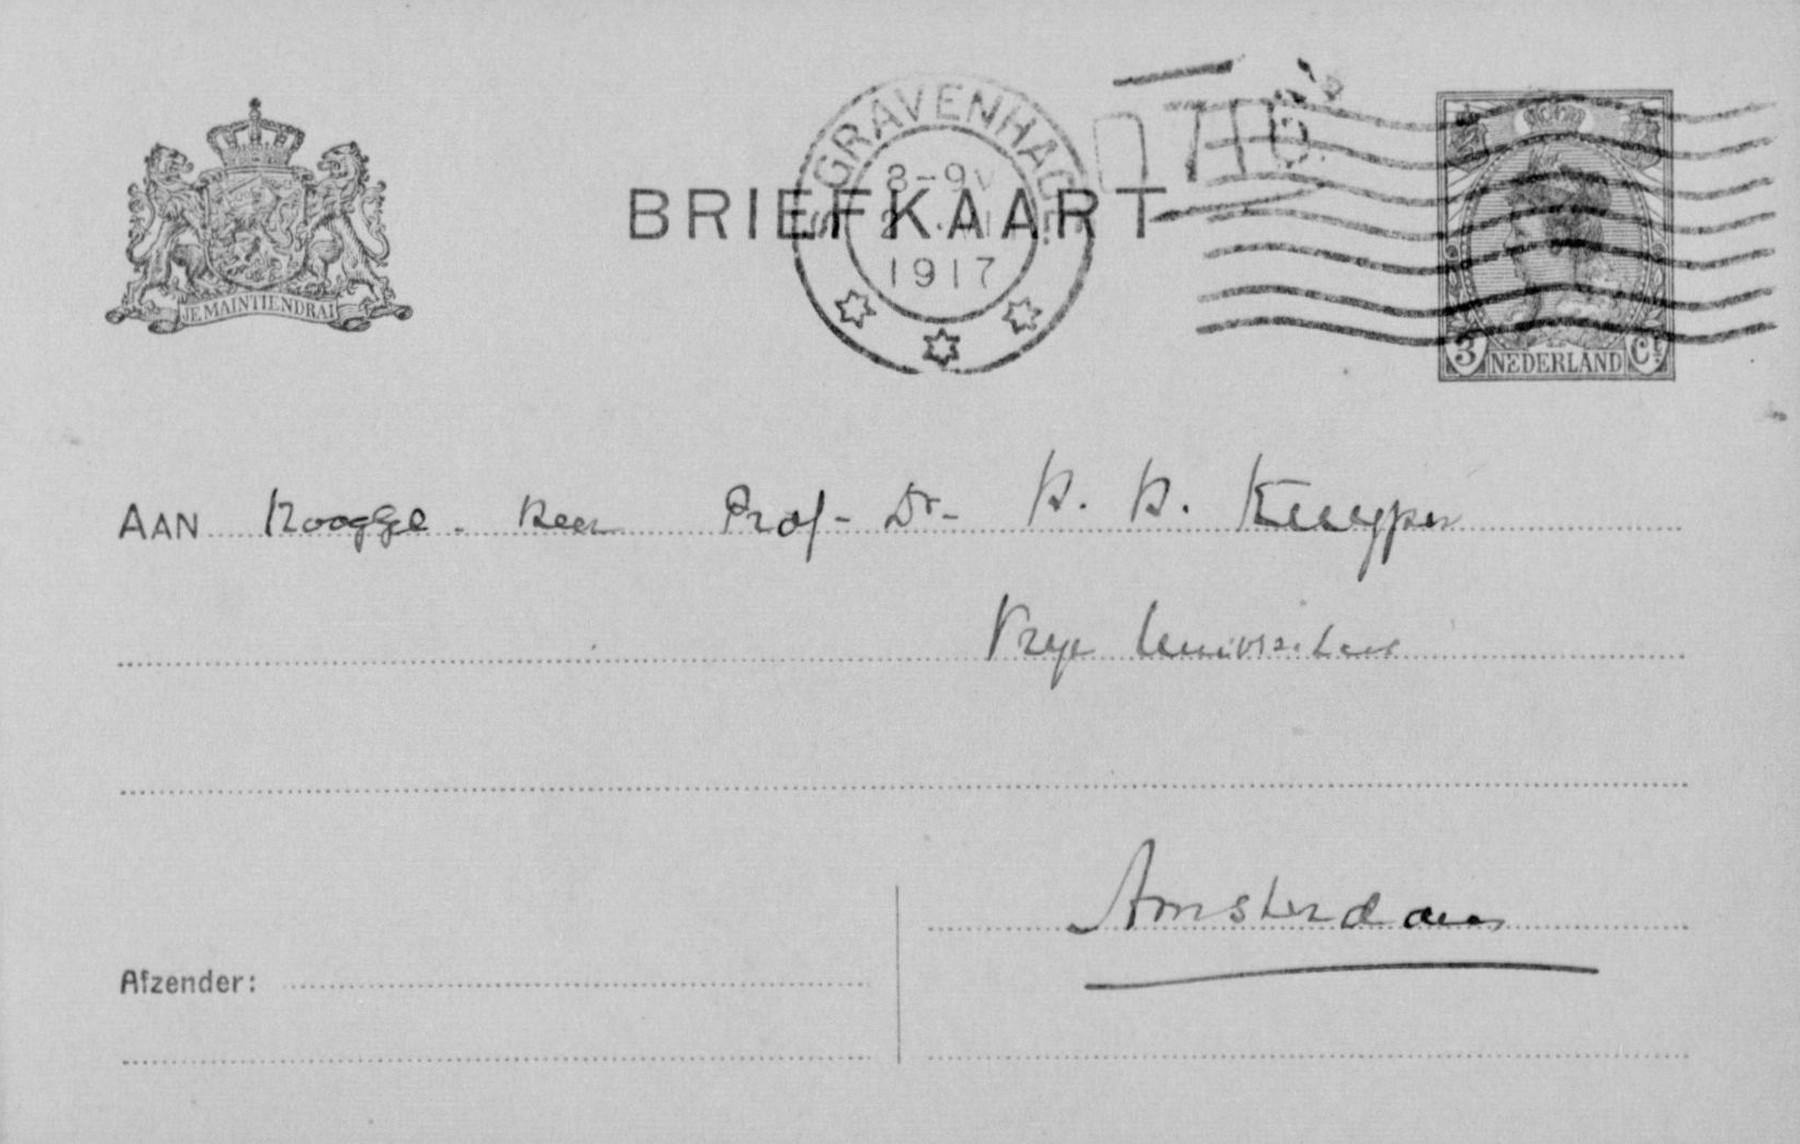 JE MAINTIENDRAI
'S GRAVENHAGE
8-9V
1917
BRIEFKAART
3 NEDERLAND Ct
AAN Hooggel. Heer Prof. Dr. H. H. Kuyper
Vrye Universiteit
Amsterdam
Afzender: